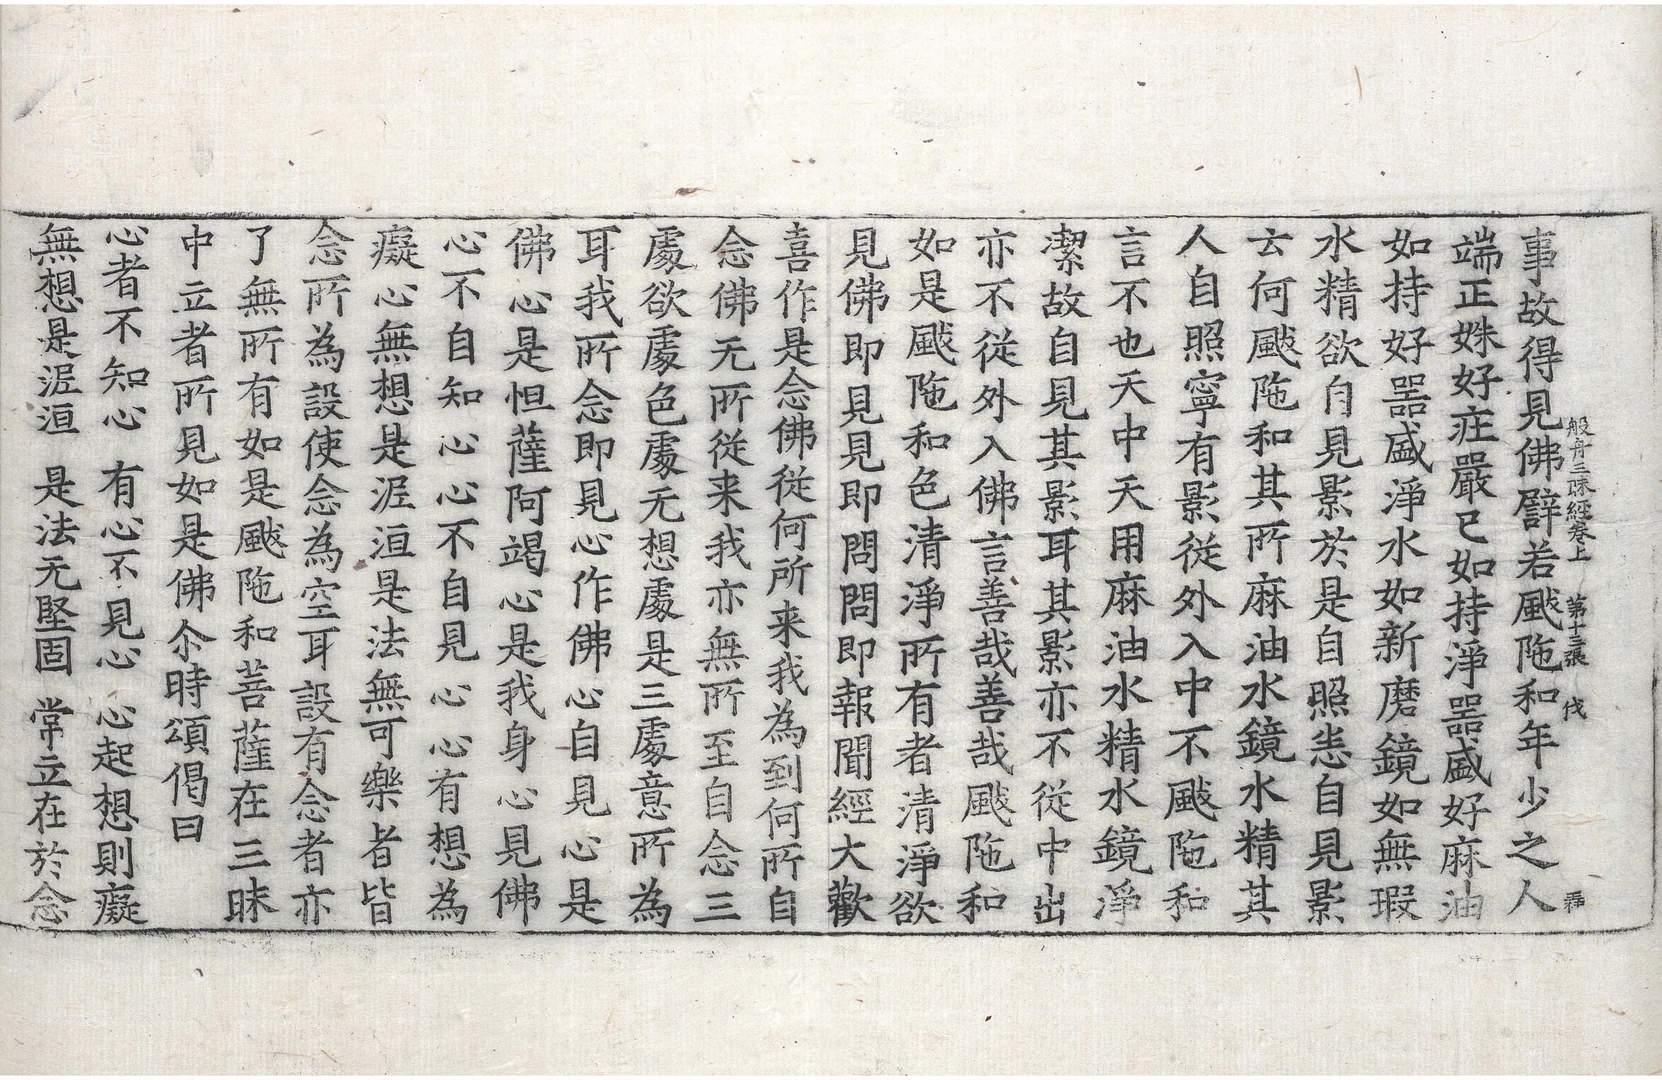 般舟三昧經卷上 第十三張 伐
事故得見佛譬若颰陁和年少之人
端正姝好莊嚴已如持淨器盛好麻油
如持好器盛淨水如新磨鏡如無瑕
水精欲自見影於是自照悉自見影
云何颰陁和其所麻油水鏡水精其
人自照寧有影從外入中不颰陁和
言不也天中天用麻油水精水鏡淨
潔故自見其影耳其影亦不從中出
亦不從外入佛言善哉善哉颰陁和
如是颰陁和色清淨所有者清淨欲
見佛即見見即問問即報聞經大歡
喜作是念佛從何所来我為到何所自
念佛无所從来我亦無所至自念三
處欲處色處无想處是三處意所為
耳我所念即見心作佛心自見心是
佛心是怛薩阿竭心是我身心見佛
心不自知心心不自見心心有想為
癡心無想是涅洹是法無可樂者皆
念所為設使念為空耳設有念者亦
了無所有如是颰陁和菩薩在三昧
中立者所見如是佛尒時頌偈曰
心者不知心 有心不見心 心起想則癡
無想是涅洹 是法无堅固 常立在於念